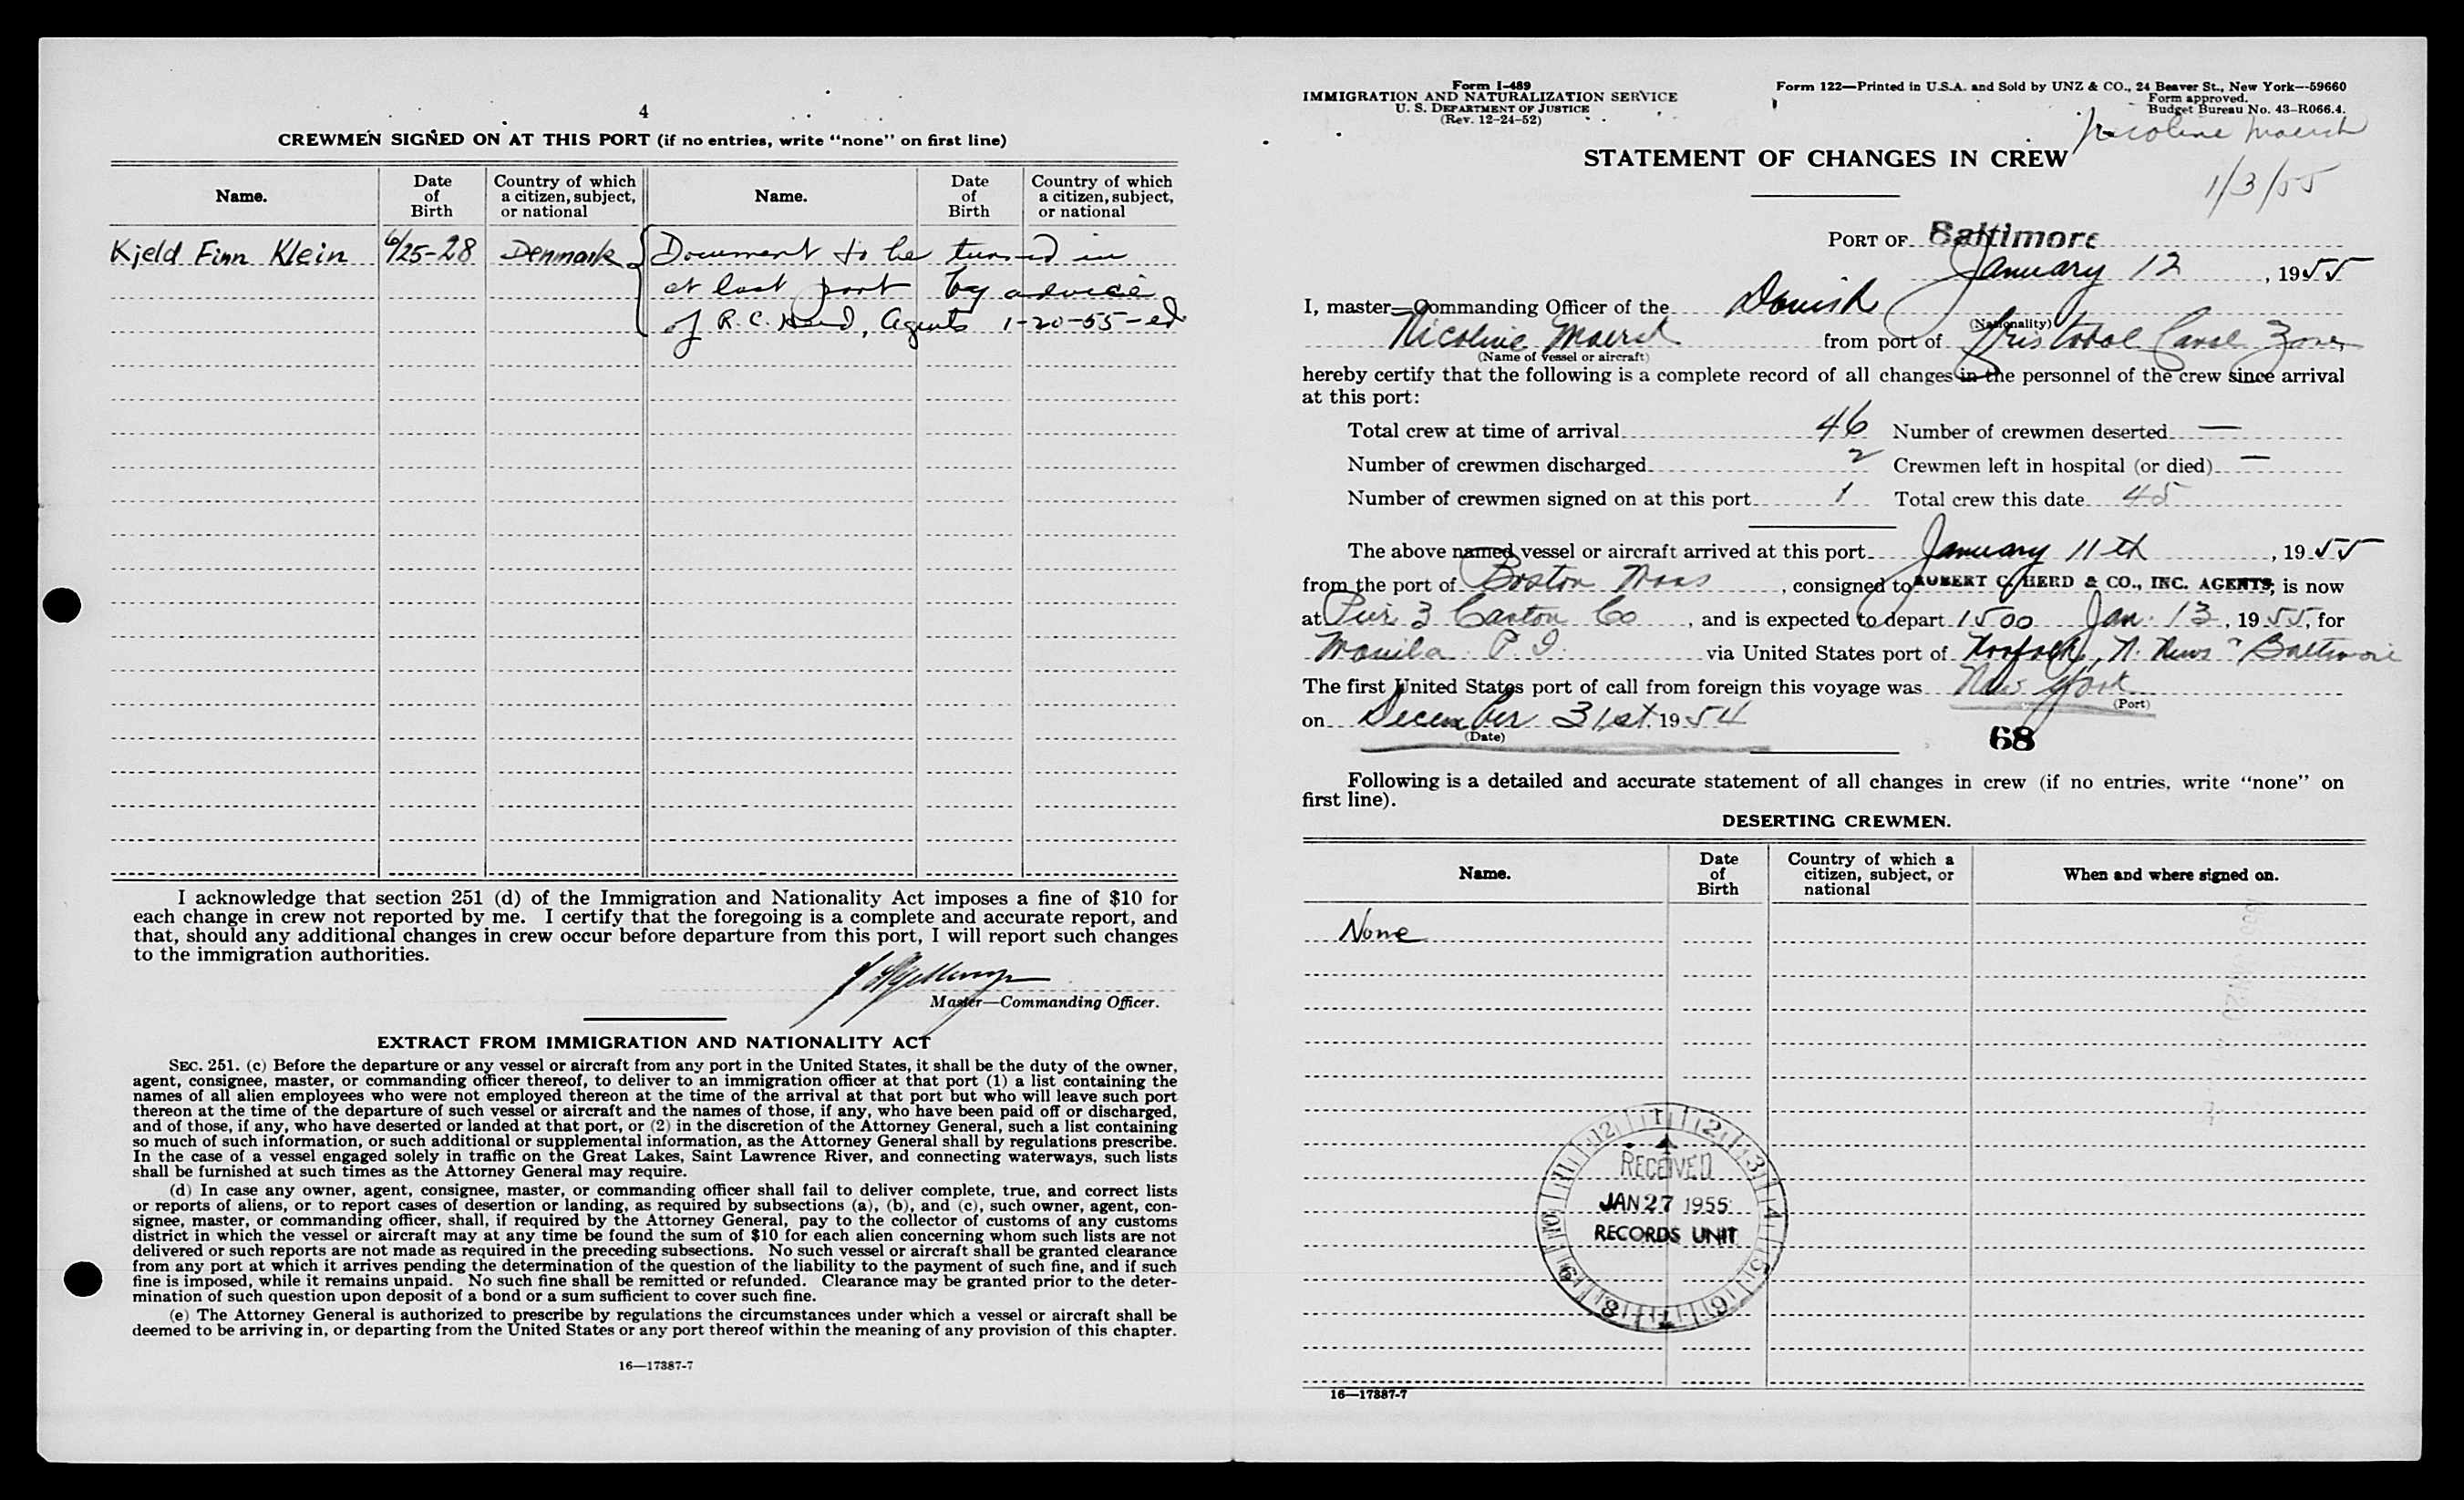 4
CREWMEN SIGNED ON AT THIS PORT (if no entries, write "none" on first line)
Name. Date of Birth Country of which a citizen, subject, or national Name. Date of Birth Country of which a citizen, subject, or national
Kjeld Finn Klein 6/25-28 Denmark Document to be turned in
at last port by advice
of R. C. Herd, Agents 1-20-55-ed
I acknowledge that section 251 (d) of the Immigration and Nationality Act imposes a fine of $10 for
each change in crew not reported by me. I certify that the foregoing is a complete and accurate report, and
that, should any additional changes in crew occur before departure from this port, I will report such changes
to the immigration authorities.
Master—Commanding Officer.
EXTRACT FROM IMMIGRATION AND NATIONALITY ACT
SEC. 251. (c) Before the departure or any vessel or aircraft from any port in the United States, it shall be the duty of the owner,
agent, consignee, master, or commanding officer thereof, to deliver to an immigration officer at that port (1) a list containing the
names of all alien employees who were not employed thereon at the time of the arrival at that port but who will leave such port
thereon at the time of the departure of such vessel or aircraft and the names of those, if any, who have been paid off or discharged,
and of those, if any, who have deserted or landed at that port, or (2) in the discretion of the Attorney General, such a list containing
so much of such information, or such additional or supplemental information, as the Attorney General shall by regulations prescribe.
In the case of a vessel engaged solely in traffic on the Great Lakes, Saint Lawrence River, and connecting waterways, such lists
shall be furnished at such times as the Attorney General may require.
(d) In case any owner, agent, consignee, master, or commanding officer shall fail to deliver complete, true, and correct lists
or reports of aliens, or to report cases of desertion or landing, as required by subsections (a), (b), and (c), such owner, agent, con-
signee, master, or commanding officer, shall, if required by the Attorney General, pay to the collector of customs of any customs
district in which the vessel or aircraft may at any time be found the sum of $10 for each alien concerning whom such lists are not
delivered or such reports are not made as required in the preceding subsections. No such vessel or aircraft shall be granted clearance
from any port at which it arrives pending the determination of the question of the liability to the payment of such fine, and if such
fine is imposed, while it remains unpaid. No such fine shall be remitted or refunded. Clearance may be granted prior to the deter-
mination of such question upon deposit of a bond or a sum sufficient to cover such fine.
(e) The Attorney General is authorized to prescribe by regulations the circumstances under which a vessel or aircraft shall be
deemed to be arriving in, or departing from the United States or any port thereof within the meaning of any provision of this chapter.
16—17387-7
Form I-489
IMMIGRATION AND NATURALIZATION SERVICE
U. S. DEPARTMENT OF JUSTICE
(Rev. 12-24-52)
Form 122—Printed in U.S.A. and Sold by UNZ & CO., 24 Beaver St., New York—59660
Form approved.
Budget Bureau No. 43-R066.4.
Nicoline Maersk
1/3/55
STATEMENT OF CHANGES IN CREW
PORT OF Baltimore
January 12, 1955
I, master—Commanding Officer of the Danish
(Nationality)
Nicoline Maersk from port of Cristobal Canal Zone,
(Name of vessel or aircraft)
hereby certify that the following is a complete record of all changes in the personnel of the crew since arrival
at this port:
Total crew at time of arrival 46 Number of crewmen deserted —
Number of crewmen discharged 2 Crewmen left in hospital (or died) —
Number of crewmen signed on at this port 1 Total crew this date 45
The above named vessel or aircraft arrived at this port January 11th, 1955
from the port of Boston Mass, consigned to ROBERT C. HERD & CO., INC. AGENTS, is now
at Pier 3 Canton Co, and is expected to depart 1500 Jan. 13, 1955, for
Manila P. I. via United States port of Norfolk, N. News Baltimore
The first United States port of call from foreign this voyage was New York
(Port)
on December 31st, 1954
(Date)
68
Following is a detailed and accurate statement of all changes in crew (if no entries, write "none" on
first line).
DESERTING CREWMEN.
Name. Date of Birth Country of which a citizen, subject, or national When and where signed on.
None
12 1 2 3 4 5 6 7 8 9 10 11
RECEIVED
JAN 27 1955
RECORDS UNIT
16—17387-7